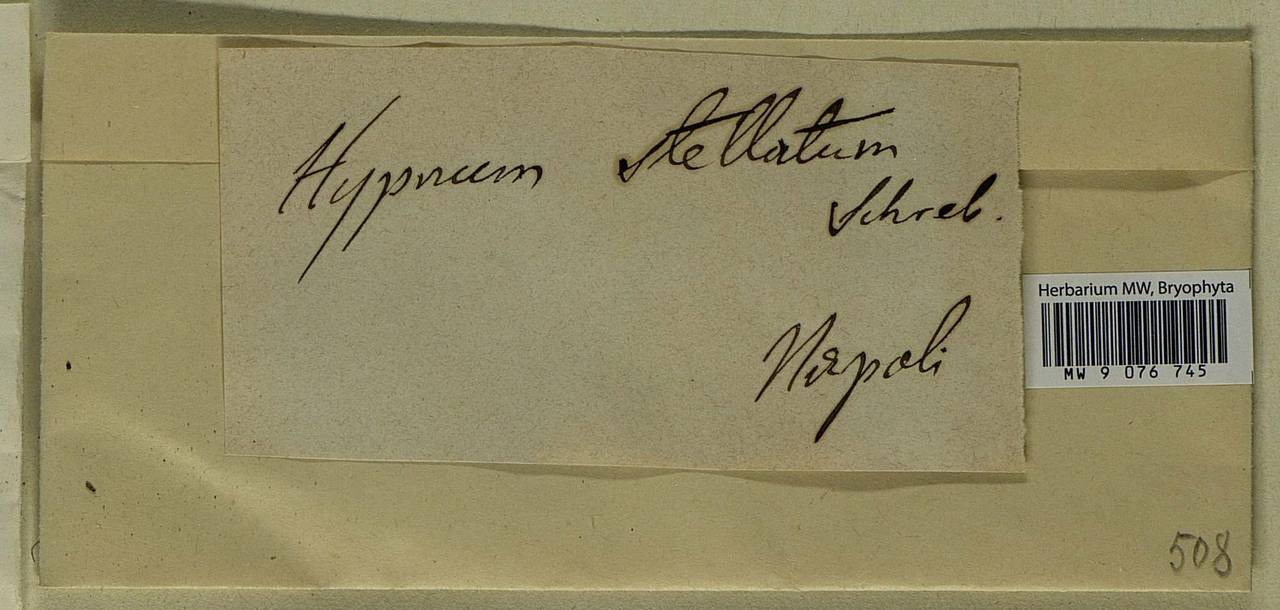 Hypnum stellatum
Schreb.
Napoli
Herbarium MW, Bryophyta
MW 9 076 745
508